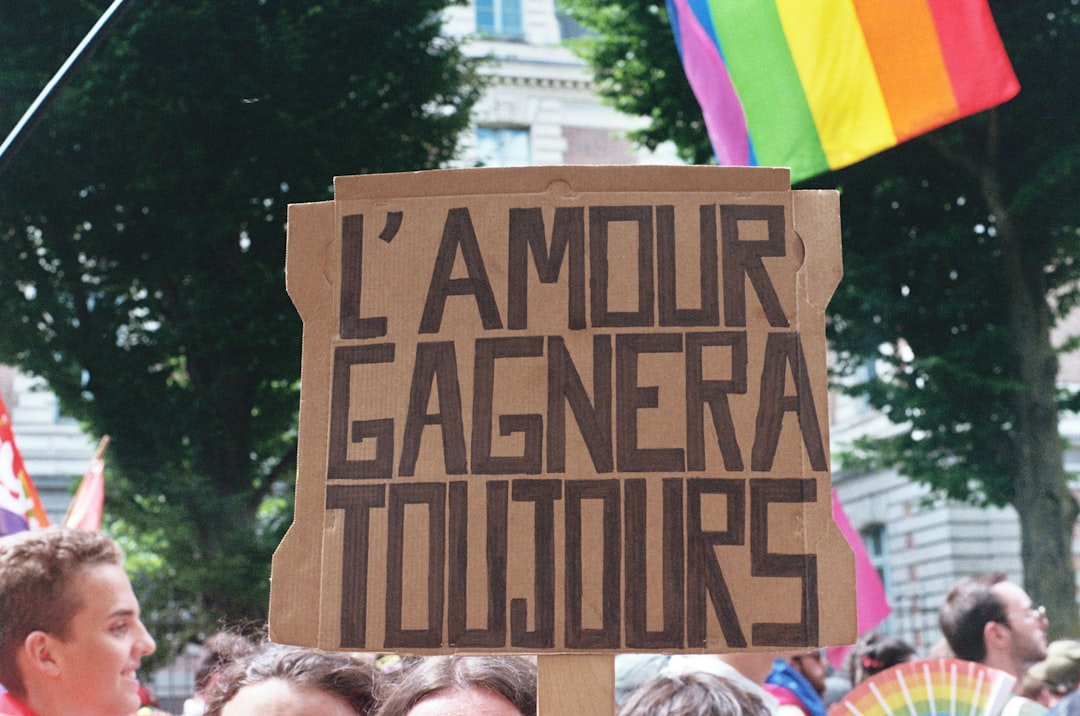 L'AMOUR
GAGNERA
TOUJOURS